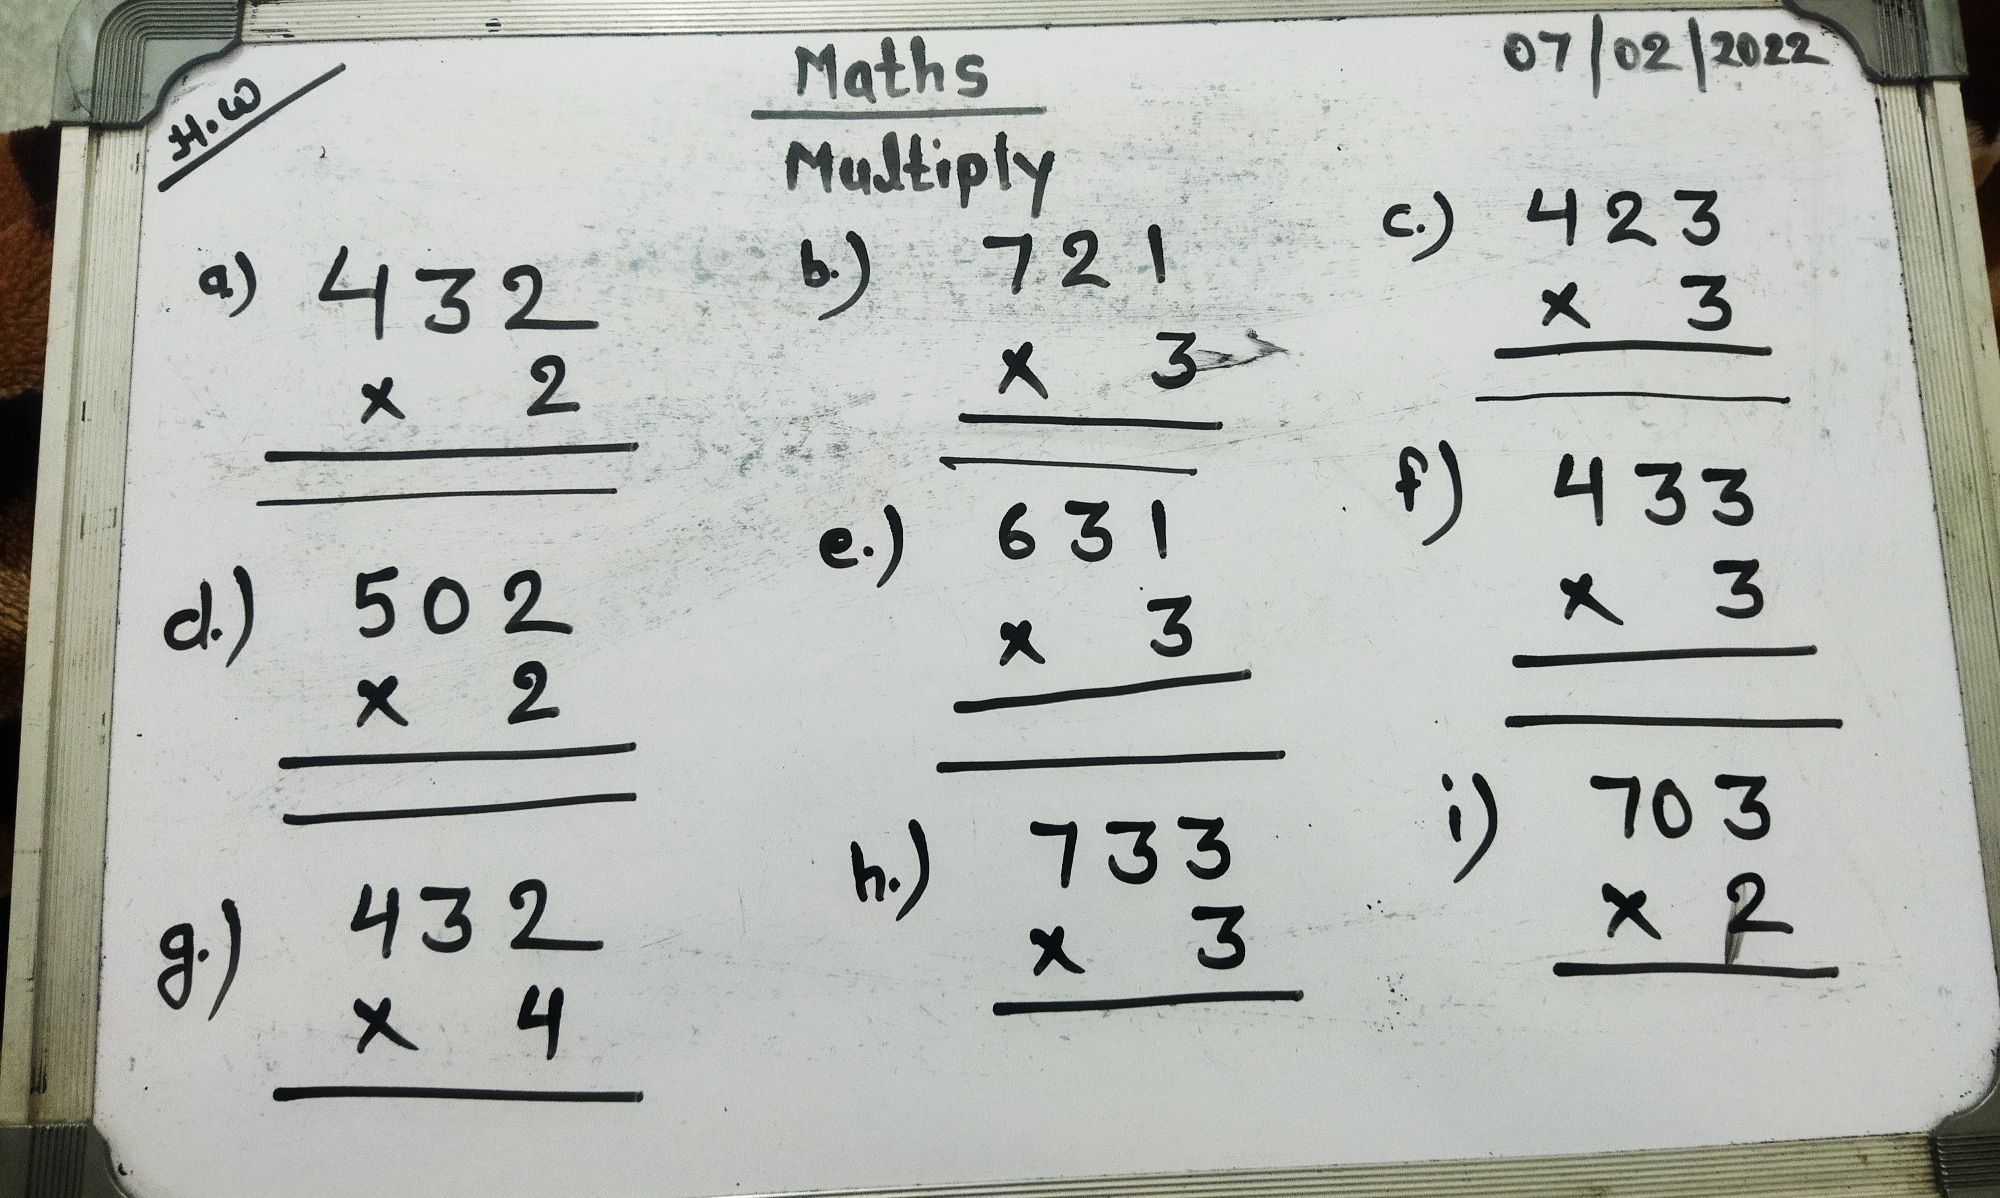 H.W
Maths
07/02/2022
Multiply
a) 432
× 2
b.) 721
× 3
c.) 423
× 3
d.) 502
× 2
e.) 631
× 3
f) 433
× 3
g.) 432
× 4
h.) 733
× 3
i) 703
× 2